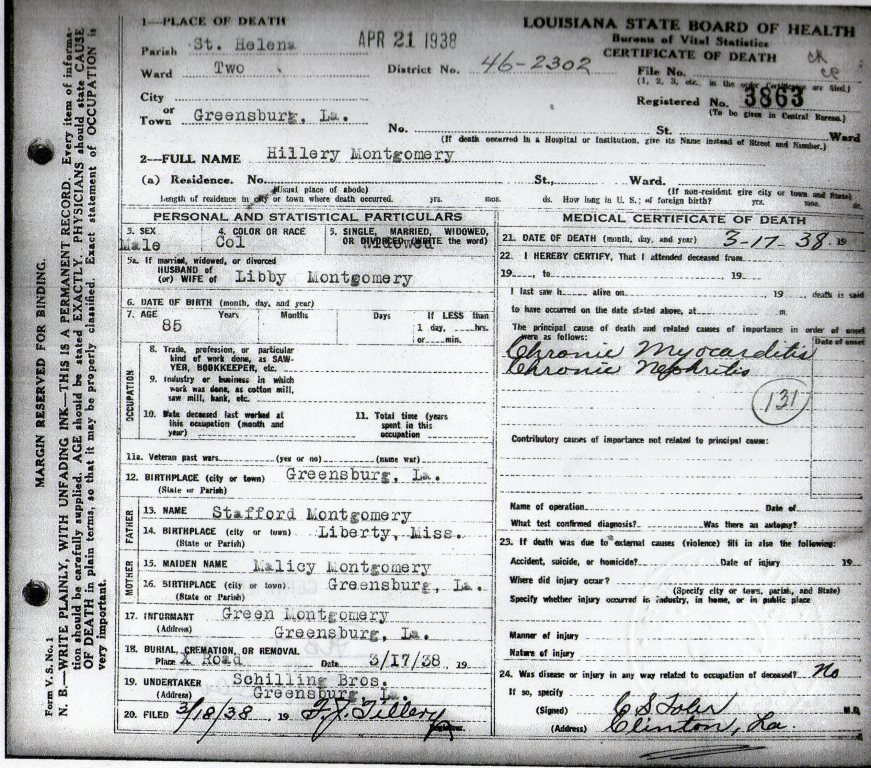 1—PLACE OF DEATH
Parish St. Helena
APR 21 1938
Ward Two
District No. 46-2302
City
or
Town Greensburg, La.
LOUISIANA STATE BOARD OF HEALTH
Bureau of Vital Statistics
CERTIFICATE OF DEATH
File No.
(1, 2, 3, etc., in the order Certificates are filed.)
Registered No. 3863
(To be given in Central Bureau.)
No. St. Ward
(If death occurred in a Hospital or Institution, give its Name instead of Street and Number.)
2—FULL NAME Hillery Montgomery
(a) Residence. No. St., Ward.
(Usual place of abode) (If non-resident give city or town and State)
Length of residence in city or town where death occurred. yrs. mos. ds. How long in U. S.; of foreign birth? yrs. mos. ds.
PERSONAL AND STATISTICAL PARTICULARS
3. SEX
Male
4. COLOR OR RACE
Col
5. SINGLE, MARRIED, WIDOWED,
OR DIVORCED (WRITE the word)
Widowed
5a. If married, widowed, or divorced
HUSBAND of
(or) WIFE of Libby Montgomery
6. DATE OF BIRTH (month, day, and year)
7. AGE Years Months Days If LESS than
85 1 day, hrs.
or min.
OCCUPATION
8. Trade, profession, or particular
kind of work done, as SAW-
YER, BOOKKEEPER, etc.
9. Industry or business in which
work was done, as cotton mill,
saw mill, bank, etc.
10. Date deceased last worked at
this occupation (month and
year)
11. Total time (years
spent in this
occupation
11a. Veteran past wars. (yes or no) (name war)
12. BIRTHPLACE (city or town) Greensburg, La.
(State or Parish)
FATHER
13. NAME Stafford Montgomery
14. BIRTHPLACE (city or town) Liberty, Miss.
(State or Parish)
MOTHER
15. MAIDEN NAME Malicy Montgomery
16. BIRTHPLACE (city or town) Greensburg, La.
(State or Parish)
17. INFORMANT Green Montgomery
(Address) Greensburg, La.
18. BURIAL, CREMATION, OR REMOVAL
Place X Road Date 3/17/38, 19
19. UNDERTAKER Schilling Bros.
(Address) Greensburg, La.
20. FILED 3/18/38 19 F. J. Tillery
MEDICAL CERTIFICATE OF DEATH
21. DATE OF DEATH (month, day, and year) 3-17-38, 19
22. I HEREBY CERTIFY, That I attended deceased from
19 , to 19
I last saw h alive on , 19 , death is said
to have occurred on the date stated above, at m
The principal cause of death and related causes of importance in order of onset
were as follows: Date of onset
Chronic Myocarditis
Chronic Nephritis
131
Contributory causes of importance not related to principal cause:
Name of operation Date of
What test confirmed diagnosis? Was there an autopsy?
23. If death was due to external causes (violence) fill in also the following:
Accident, suicide, or homicide? Date of injury 19
Where did injury occur?
(Specify city or town, parish, and State)
Specify whether injury occurred in industry, in home, or in public place
Manner of injury
Nature of injury
24. Was disease or injury in any way related to occupation of deceased? No
If so, specify
(Signed) C S Toler M.D.
(Address) Clinton, La.
MARGIN RESERVED FOR BINDING.
Form V. S. No. 1
N. B.—WRITE PLAINLY, WITH UNFADING INK—THIS IS A PERMANENT RECORD. Every item of informa-
tion should be carefully supplied. AGE should be stated EXACTLY. PHYSICIANS should state CAUSE
OF DEATH in plain terms, so that it may be properly classified. Exact statement of OCCUPATION is
very important.